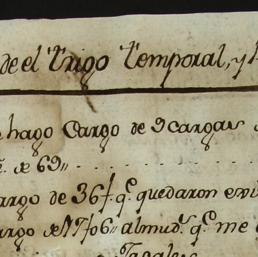 de el trigo temporal, y
hago Cargo de 9 cargas
de 69,,
argo de 36 f. q.e quedaron exis
argo de 17/06,, almud.s q.e me